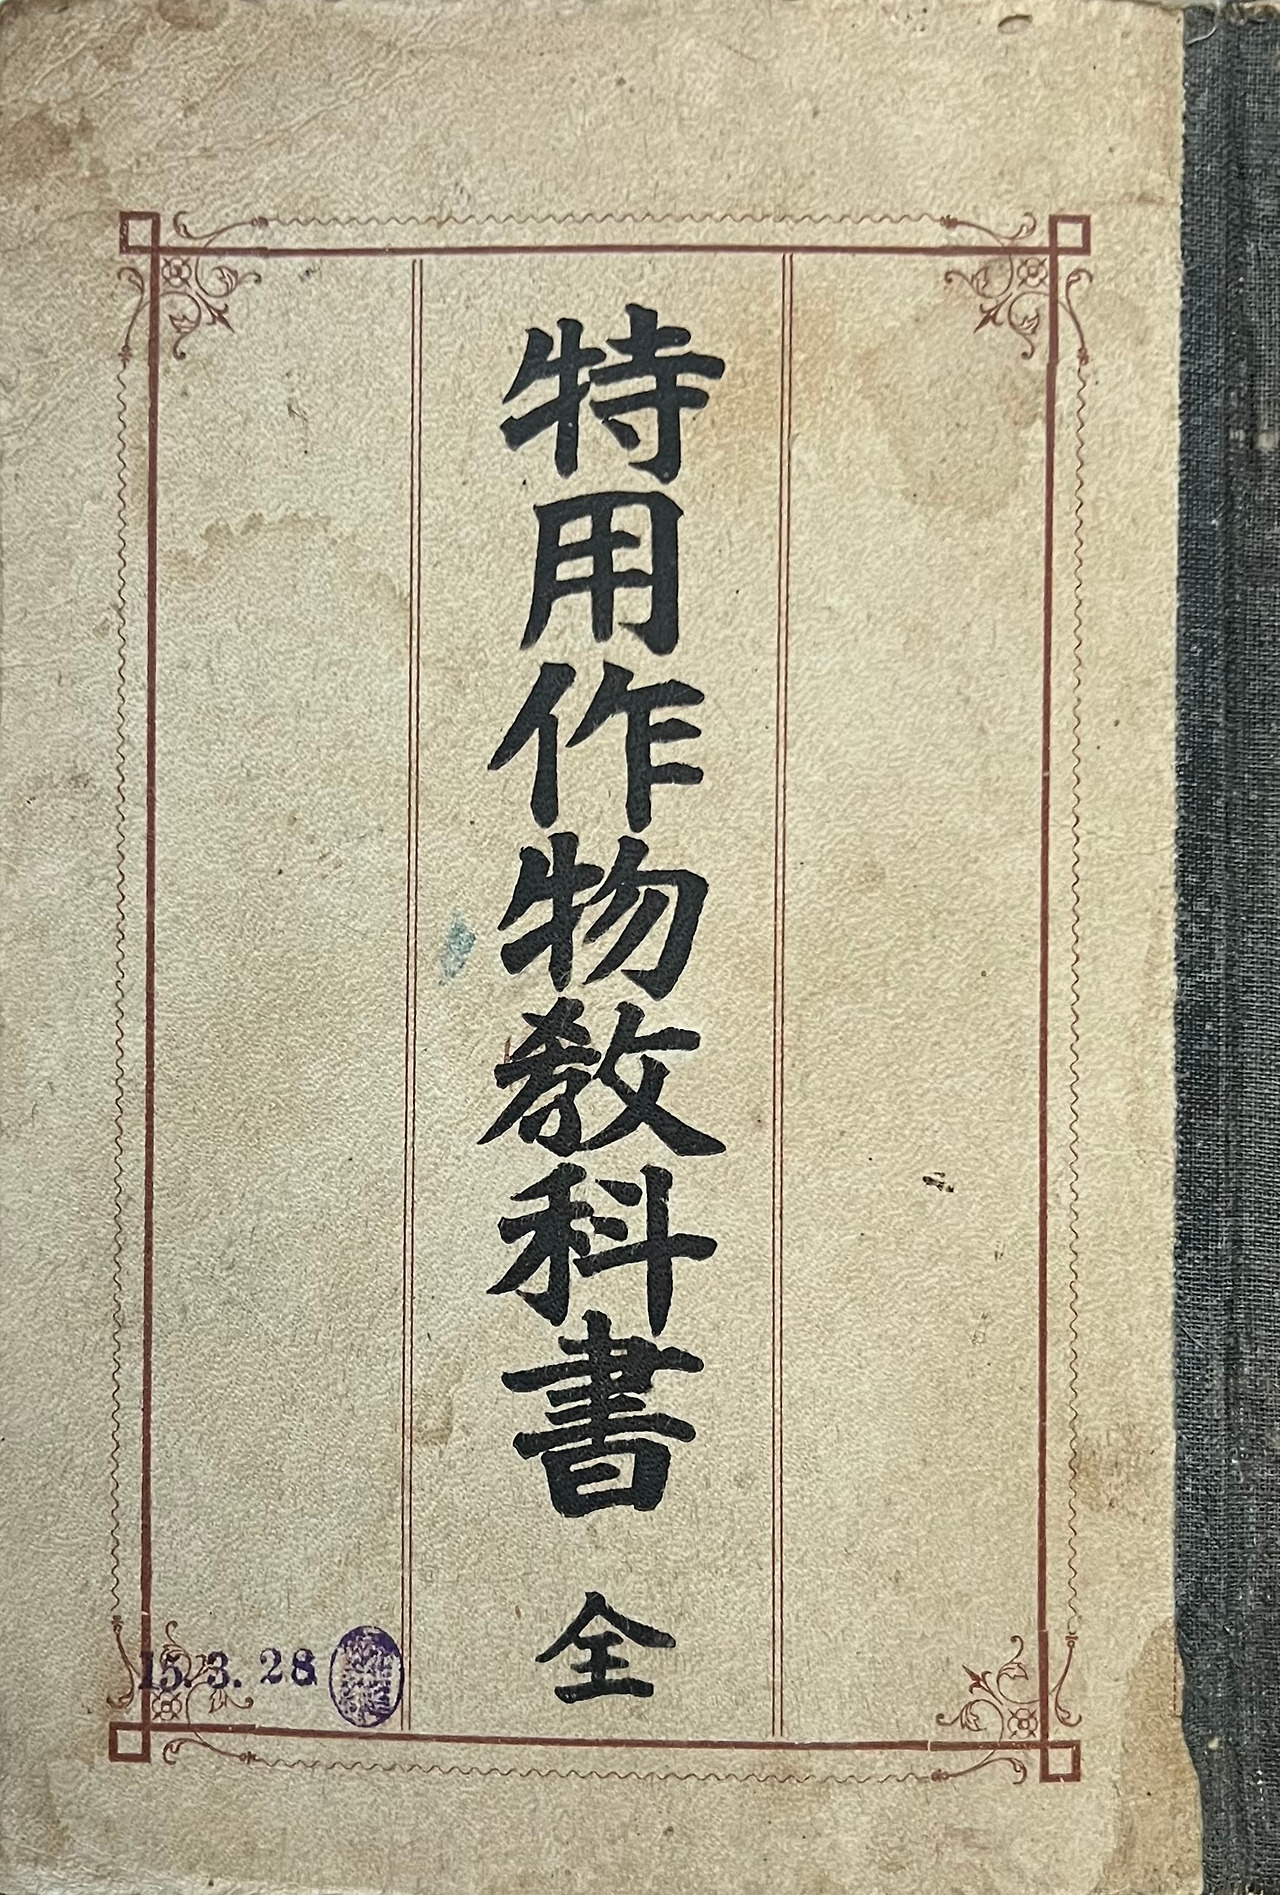 特用作物敎科書
全
15.3.28